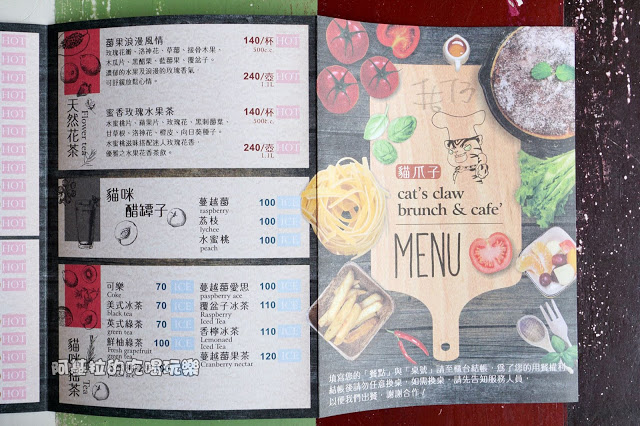 HOT
天然花茶
Flower tea
莓果浪漫風情 140/杯 HOT
500c.c.
玫瑰花瓣、洛神花、草莓、接骨木果、
木瓜片、黑醋栗、藍莓果、覆盆子。
濃郁的水果及浪漫的玫瑰香氣
可舒緩放鬆心情。
240/壺 HOT
1.1L
蜜香玫瑰水果茶 140/杯 HOT
500c.c.
水蜜桃片、蘋果片、玫瑰花、黑刺莓葉、
甘草根、洛神花、橙皮、向日葵種子。
水蜜桃滋味搭配迷人玫瑰花香、
優雅之水果花香茶飲。
240/壺 HOT
1.1L
貓咪醋罈子
蔓越莓 100 ICE
raspberry
荔枝 100 ICE
lychee
水蜜桃 100 ICE
peach
貓咪搖茶
Tea
可樂 70 ICE
Coke
美式冰茶 70 ICE
black tea
英式綠茶 70 ICE
green tea
鮮柚綠茶 100 ICE
Fresh grapefruit
green tea
蔓越莓愛思 100 ICE
paspberry ace
覆盆子冰茶 110 ICE
Raspberry
Iced Tea
香檸冰茶 110 ICE
Lemonaed
Iced Tea
蔓越莓果茶 120 ICE
Cranberry nectar
貓爪子
cat's claw
brunch & cafe'
MENU
填寫您的「餐點」與「桌號」請至櫃台結帳，為了您的用餐權利
結帳後請勿任意換桌，如需換桌，請先告知服務人員，
以便我們出餐，謝謝合作！
阿曼拉的吃喝玩樂